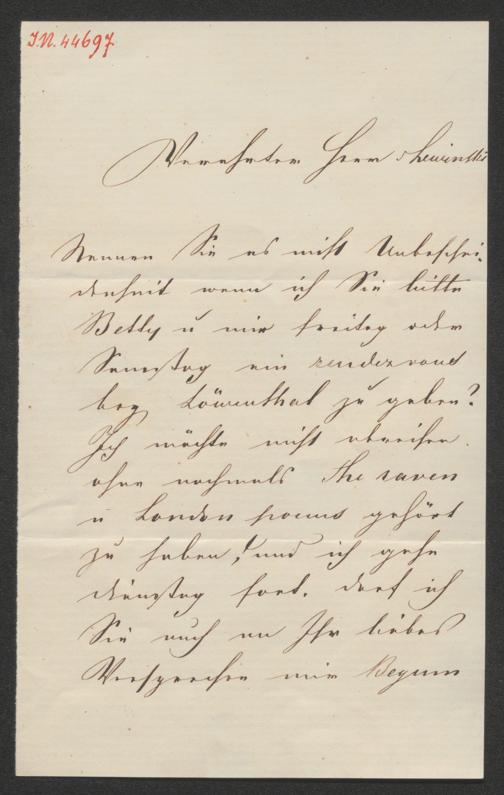 I.N. 44697
Verehrter Herr Lewinski
Nennen Sie es nicht Unbeschei-
denheit wenn ich Sie bitte
Betty u mir freitag oder
Samstag ein rendezvous
bey Löwenthal zu geben?
Ich möchte nicht abreisen
ohne nochmals The raven
u London poems gehört
zu haben, und ich gehe
dienstag fort. darf ich
Sie auch an Ihr liebes
Versprechen mir Begum